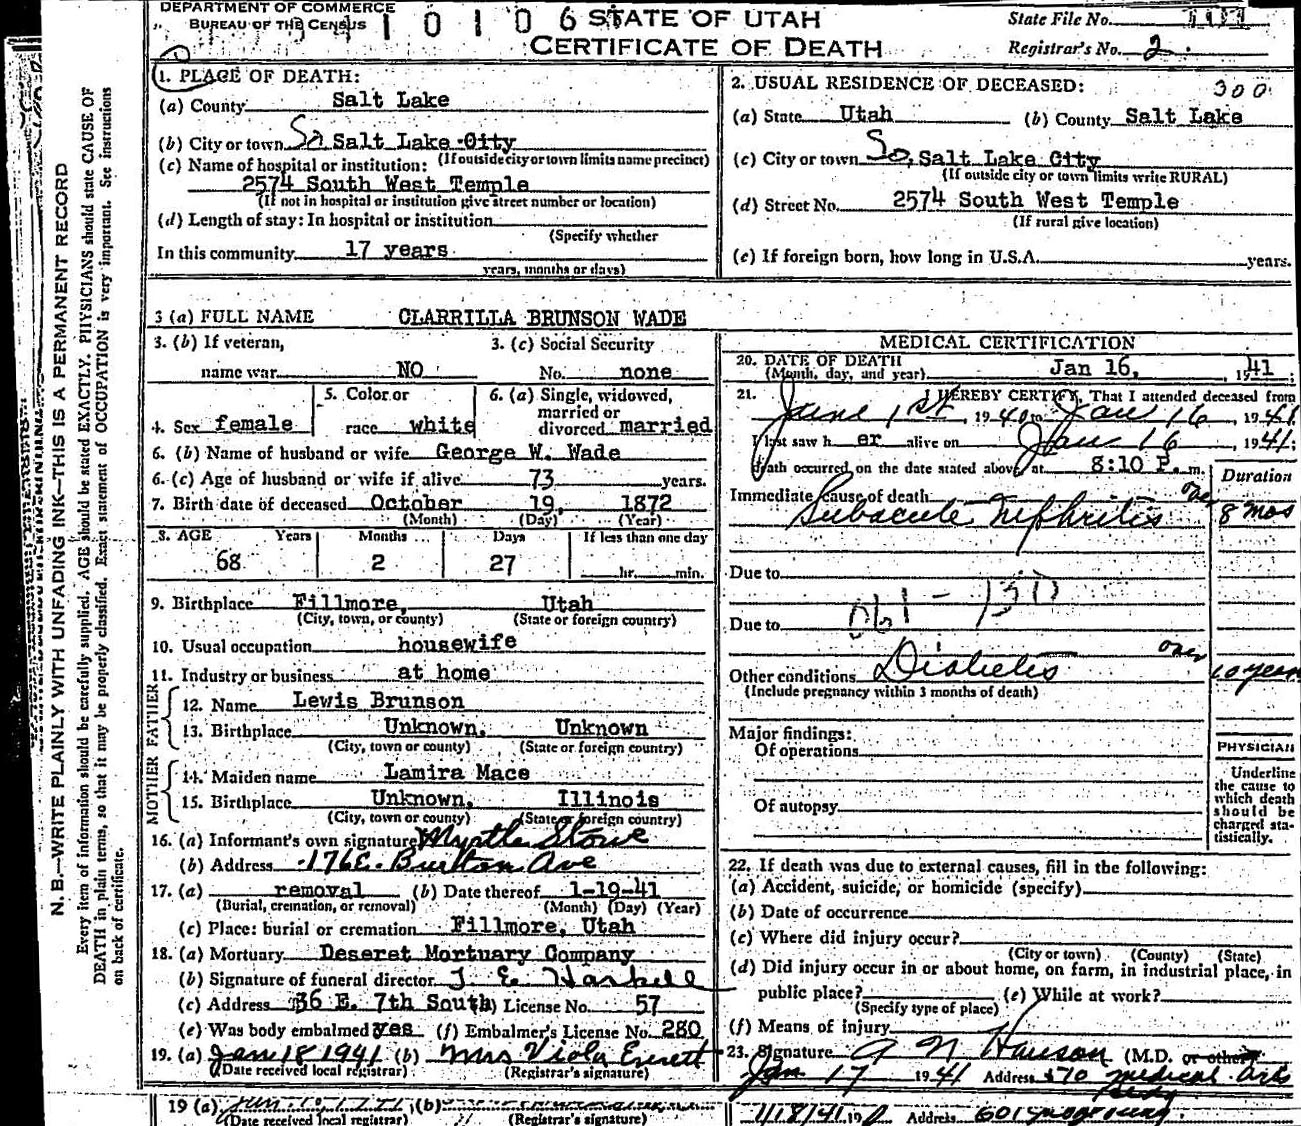 DEPARTMENT OF COMMERCE
BUREAU OF THE CENSUS
1 0 1 0 6
STATE OF UTAH
CERTIFICATE OF DEATH
State File No.
Registrar's No. 2
N. B.—WRITE PLAINLY WITH UNFADING INK—THIS IS A PERMANENT RECORD
Every item of information should be carefully supplied. AGE should be stated EXACTLY. PHYSICIANS should state CAUSE OF
DEATH in plain terms, so that it may be properly classified. Exact statement of OCCUPATION is very important. See instructions
on back of certificate.
1. PLACE OF DEATH:
(a) County Salt Lake
(b) City or town So Salt Lake City
(If outside city or town limits name precinct)
(c) Name of hospital or institution:
2574 South West Temple
(If not in hospital or institution give street number or location)
(d) Length of stay: In hospital or institution
(Specify whether
In this community 17 years
years, months or days)
2. USUAL RESIDENCE OF DECEASED:
300
(a) State Utah (b) County Salt Lake
(c) City or town So. Salt Lake City
(If outside city or town limits write RURAL)
(d) Street No. 2574 South West Temple
(If rural give location)
(e) If foreign born, how long in U.S.A. years.
3 (a) FULL NAME CLARRILLA BRUNSON WADE
3. (b) If veteran,
name war NO
3. (c) Social Security
No. none
4. Sex female
5. Color or
race white
6. (a) Single, widowed,
married or
divorced married
6. (b) Name of husband or wife George W. Wade
6. (c) Age of husband or wife if alive 73 years.
7. Birth date of deceased October 19, 1872
(Month) (Day) (Year)
8. AGE Years Months Days If less than one day
68 2 27 hr. min.
9. Birthplace Fillmore, Utah
(City, town, or county) (State or foreign country)
10. Usual occupation housewife
11. Industry or business at home
FATHER
12. Name Lewis Brunson
13. Birthplace Unknown, Unknown
(City, town or county) (State or foreign country)
MOTHER
14. Maiden name Lamira Mace
15. Birthplace Unknown, Illinois
(City, town or county) (State or foreign country)
16. (a) Informant's own signature Myrtle Stowe
(b) Address 176 E. Burton Ave
17. (a) removal (b) Date thereof 1-19-41
(Burial, cremation, or removal) (Month) (Day) (Year)
(c) Place: burial or cremation Fillmore, Utah
18. (a) Mortuary Deseret Mortuary Company
(b) Signature of funeral director J E Haskell
(c) Address 36 E. 7th South License No. 57
(e) Was body embalmed yes (f) Embalmer's License No. 280
19. (a) Jan 18 1941 (b) Mrs Viola Everett
(Date received local registrar) (Registrar's signature)
19 (a) (b)
(Date received local registrar) (Registrar's signature)
MEDICAL CERTIFICATION
20. DATE OF DEATH
(Month, day, and year) Jan 16, 1941
21. I HEREBY CERTIFY, That I attended deceased from
June 1st 1940 to Jan 16, 1941
I last saw h er alive on Jan 16 1941;
death occurred on the date stated above at 8:10 P. m.
Duration
Immediate cause of death
Subacute Nephritis over 8 mos
Due to
Due to
Other conditions Diabetis over 10 years
(Include pregnancy within 3 months of death)
Major findings:
Of operations
Of autopsy
PHYSICIAN
Underline
the cause to
which death
should be
charged sta-
tistically.
22. If death was due to external causes, fill in the following:
(a) Accident, suicide, or homicide (specify)
(b) Date of occurrence
(c) Where did injury occur?
(City or town) (County) (State)
(d) Did injury occur in or about home, on farm, in industrial place, in
public place? (e) While at work?
(Specify type of place)
(f) Means of injury
23. Signature A N Hanson (M.D. or other)
Jan 17 1941 Address 570 Medical Arts
Bldg
1/18/41 19 Address